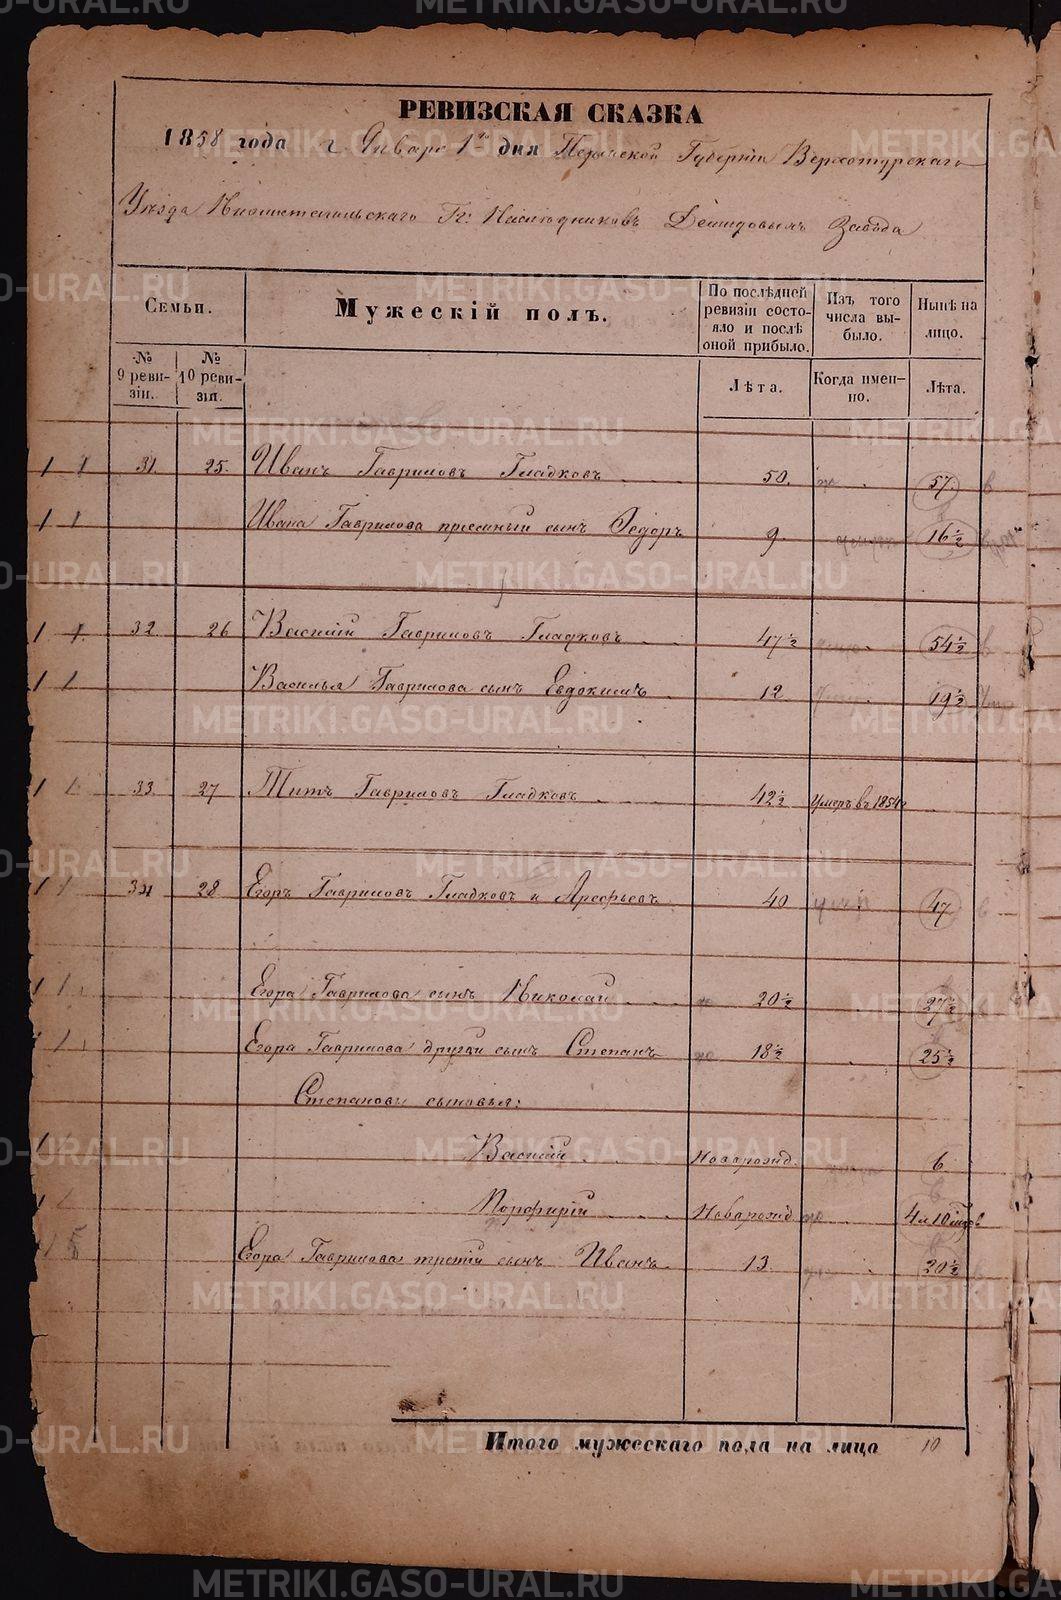 РЕВИЗСКАЯ СКАЗКА
1858 года г. Января 1го дня Пермской Губерніи Верхотурскаго
Уѣзда Нижнетагильскаго Гг: Наслѣдниковъ Демидовыхъ Завода
Семьи.
Мужескій полъ.
По послѣдней ревизіи состояло и послѣ оной прибыло.
Изъ того числа выбыло.
Нынѣ на лицо.
№ 9 ревизіи.
№ 10 ревизія.
Лѣта.
Когда именно.
Лѣта.
31. 25. Иванъ Гавриловъ Гладковъ 50. 57.
Ивана Гаврилова сынъ Ѳедоръ 9. 16½
32 26 Василій Гавриловъ Гладковъ 47½ 54½
Василья Гаврилова сынъ Евдокимъ 12 19½
33 27 Титъ Гавриловъ Гладковъ 42½ Умеръ въ 1854
34 28 Егоръ Гавриловъ Гладковъ и Арефьевъ 40 47
Егора Гаврилова сынъ Николай 20½ 27½
Егора Гаврилова другой сынъ Степанъ 18½ 25½
Степановы сыновья:
Василій Новорожд. 6
Порфирій Новорожд. 4 и 10 мцовъ
Егора Гаврилова третій сынъ Иванъ 13 20½
Итого мужескаго пола на лицо 10
METRIKI.GASO-URAL.RU